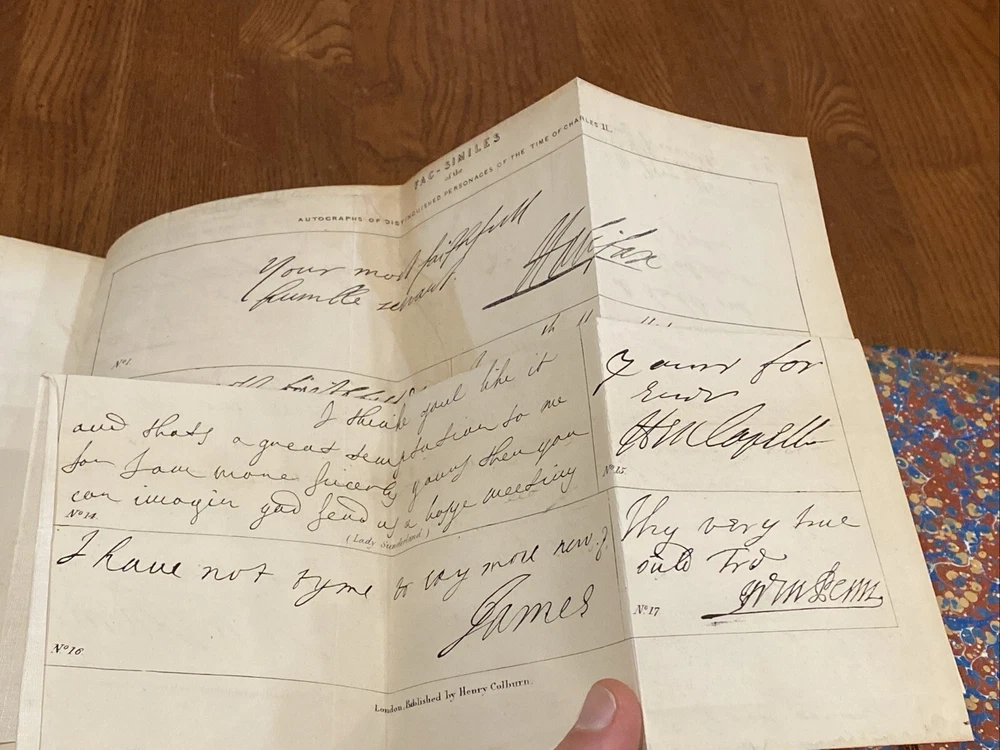 FAC-SIMILES
of the
AUTOGRAPHS OF DISTINGUISHED PERSONAGES OF THE TIME OF CHARLES II.
Your most faithfull
humble servant.
Halifax
Nº1.
I think youl like it
and thats a great temptation to me
for I am more sincerly yours then you
can imagin god send us a hapye meeting
Nº14.
(Lady Sunderland)
yours for
ever
HM Capell
Nº15.
I have not tyme to say more now.
James
Nº16
Thy very true
ould Frd
Wm Penn
Nº17
London, Published by Henry Colburn.